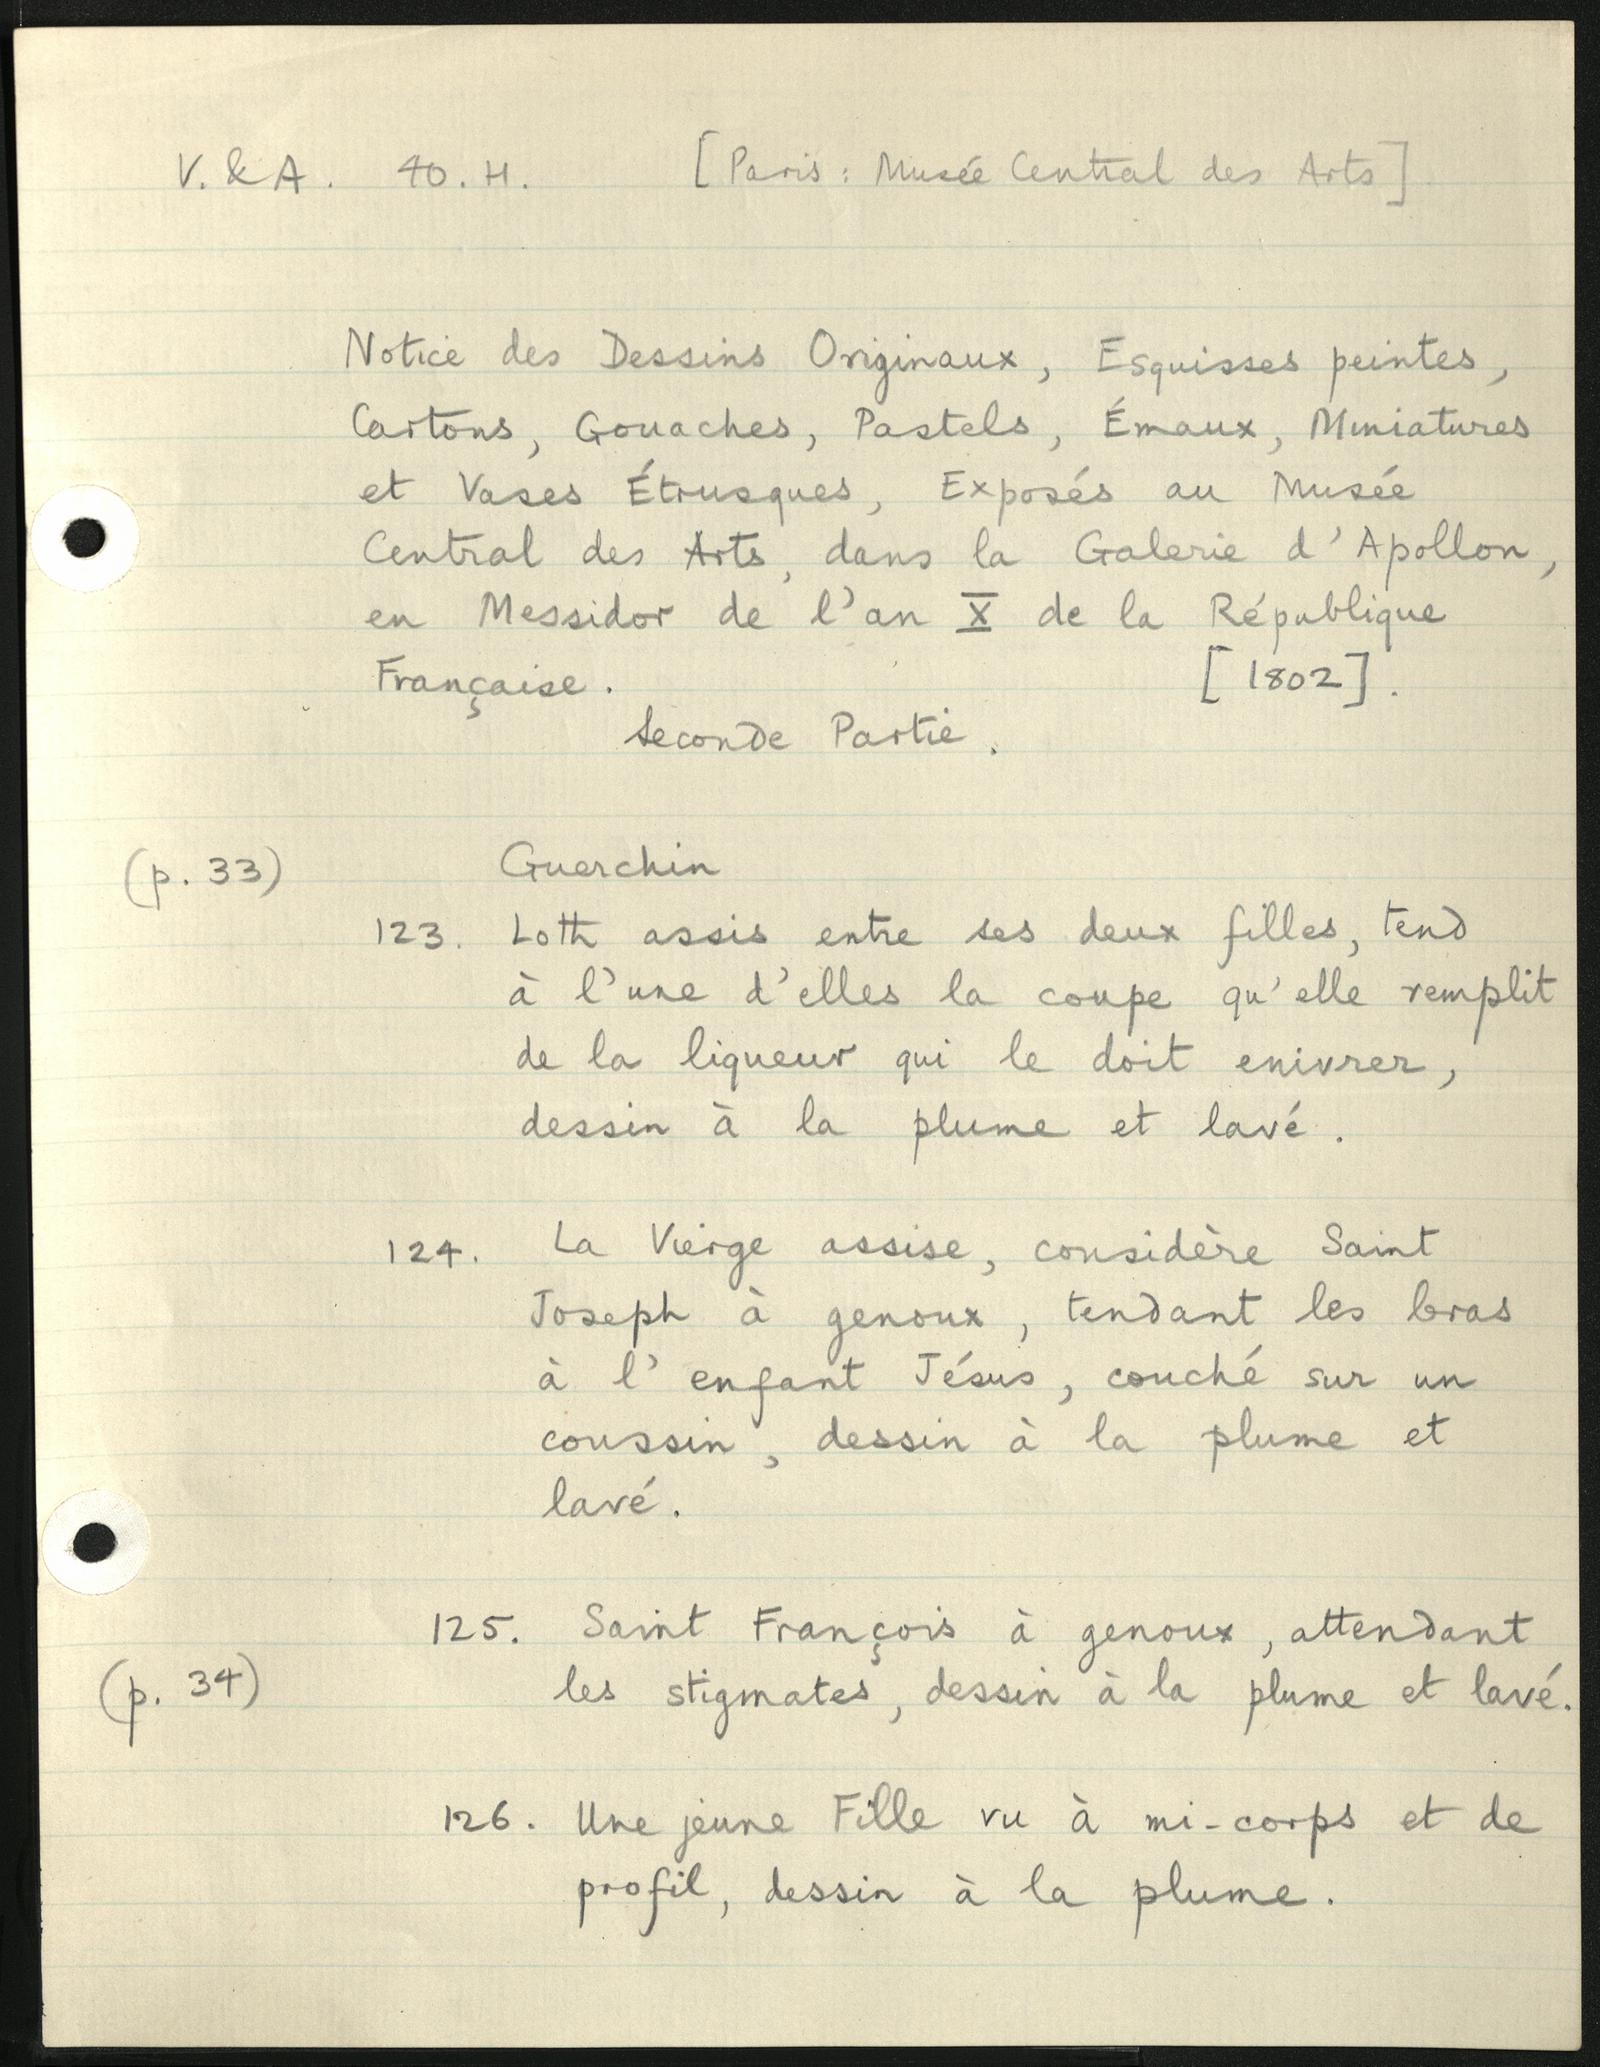 V. & A. 40. H. [Paris: Musée Central des Arts]
Notice des Dessins Originaux, Esquisses peintes,
Cartons, Gouaches, Pastels, Émaux, Miniatures
et Vases Étrusques, Exposés au Musée
Central des Arts, dans la Galerie d'Apollon,
en Messidor de l'an X de la République
Française. [1802].
Seconde Partie.
(p. 33) Guerchin
123. Loth assis entre ses deux filles, tend
à l'une d'elles la coupe qu'elle remplit
de la liqueur qui le doit enivrer,
dessin à la plume et lavé.
124. La Vierge assise, considère Saint
Joseph à genoux, tendant les bras
à l'enfant Jésus, couché sur un
coussin, dessin à la plume et
lavé.
125. Saint François à genoux, attendant
(p. 34) les stigmates, dessin à la plume et lavé.
126. Une jeune Fille vu à mi-corps et de
profil, dessin à la plume.